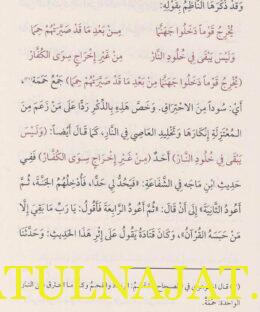 وَقَدْ ذَكَرَهَا النَّاظِمُ بِقَوْلِهِ:
يُخْرِجُ قَوْماً دَخَلُوا جَهَنَّمَا مِنْ بَعْدِ مَا قَدْ صَيَّرَتْهُمْ حِمَمَا
وَلَيْسَ يَبْقَى فِي خُلُودِ النَّارِ مِنْ غَيْرِ إِخْرَاجٍ سِوَى الكُفَّارِ
(يُخْرِجُ قَوْماً دَخَلُوا جَهَنَّمَا مِنْ بَعْدِ مَا قَدْ صَيَّرَتْهُمْ حِمَمَا) جَمْعُ حُمَمَة
أَيْ: سُوداً مِنَ الاحْتِرَاقِ. وَخَصَّ هَذِهِ بِالذِّكْرِ رَدًّا عَلَى مَنْ زَعَمَ مِنَ
المُعْتَزِلَةِ إِنْكَارَهَا وَتَخْلِيدَ العَاصِي فِي النَّارِ، كَمَا قَالَ أَيْضاً: (وَلَيْسَ
يَبْقَى فِي خُلُودِ النَّارِ) أَحَدٌ (مِنْ غَيْرِ إِخْرَاجٍ سِوَى الكُفَّارِ) فَفِي
حَدِيثِ ابْنِ مَاجَه فِي الشَّفَاعَةِ: «فَيَحُدُّ لِي حَدًّا، فَأُدْخِلُهُمُ الجَنَّةَ، ثُمَّ
أَعُودُ الثَّانِيَةَ» إِلَى أَنْ قَالَ: «ثُمَّ أَعُودُ الرَّابِعَةَ فَأَقُولُ: يَا رَبِّ مَا بَقِيَ إِلَّا
مَنْ حَبَسَهُ القُرْآنُ»، وَكَانَ قَتَادَةُ يَقُولُ عَلَى إِثْرِ هَذَا الحَدِيثِ: وَحَدَّثَنَا
الوَاحِدَة: حُمَمَة.
ATULNAJAT.